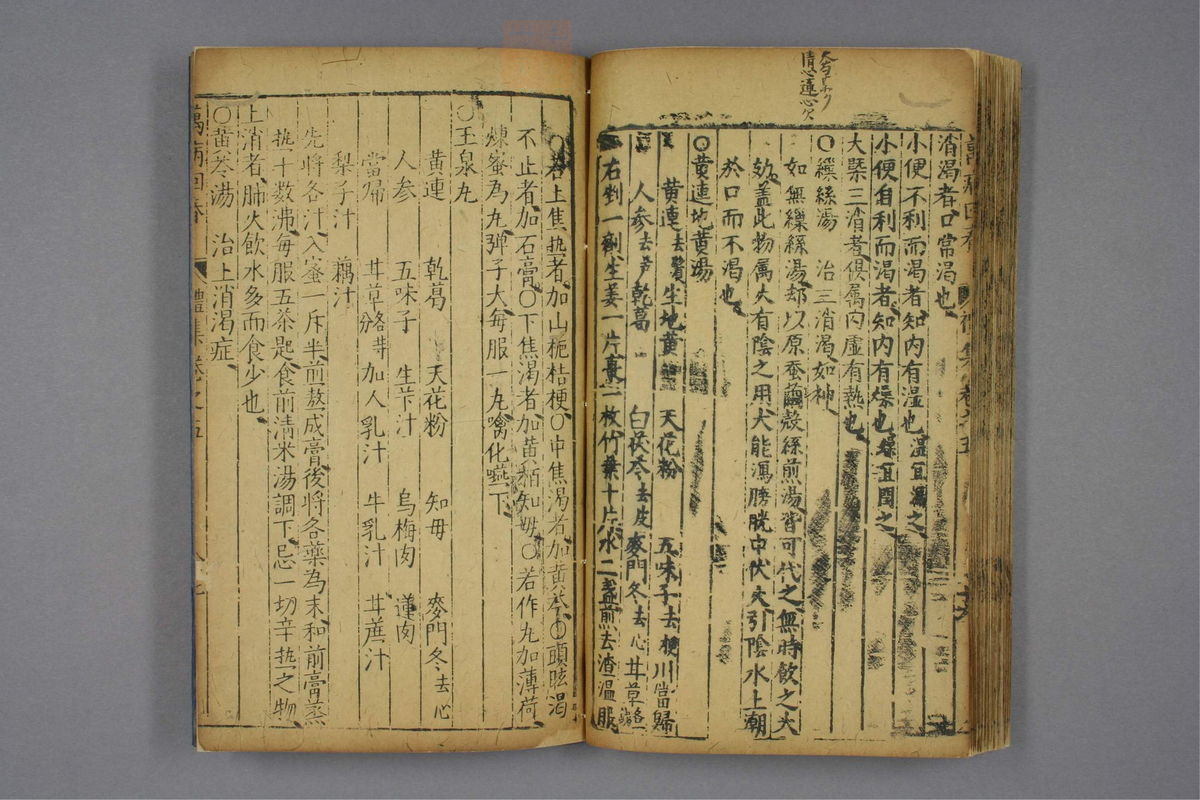 消渇者口常渇也
小便不利而渇者知内有湿也湿宜瀉之
小便自利而渇者知内有燥也燥宜潤之
大槩三消者俱属内虚有熱也
〇繅絲湯 治三消渇如神
如無繅絲湯却以原蚕殻絲煎湯皆可代之無時飲之大
効盖此物属火有陰之用大能瀉膀胱中伏火引陰水上潮
於口而不渇也
〇黄連地黄湯
黄連去鬚 生地黄 天花粉 五味子去梗 川當歸
人参去芦 乾葛 白茯苓去皮 麥門冬去心 甘草
右剉一劑生姜一片棗二枚竹葉十片水二盞煎去渣温服
〇若上焦热者加山栀桔梗〇中焦渇者加黄芩〇頭眩渇
不止者加石膏〇下焦渇者加黄栢知毋〇若作丸加薄荷
煉蜜為丸弾子大每服一丸噙化嚥下
〇玉泉丸
黄連 乾葛 天花粉 知毋 麥門冬去心
人参 五味子 生苄汁 烏梅肉 蓮肉
當歸 甘草各等分 加人乳汁 牛乳汁 甘蔗汁
梨子汁 藕汁
先將各汁入蜜一斤半煎熬成膏後將各藥為末和前膏蒸
热十数沸每服五茶匙食前清米湯調下忌一切辛热之物
上消者肺火飲水多而食少也
〇黄芩湯 治上消渇症
萬病回春 禮集 卷之五